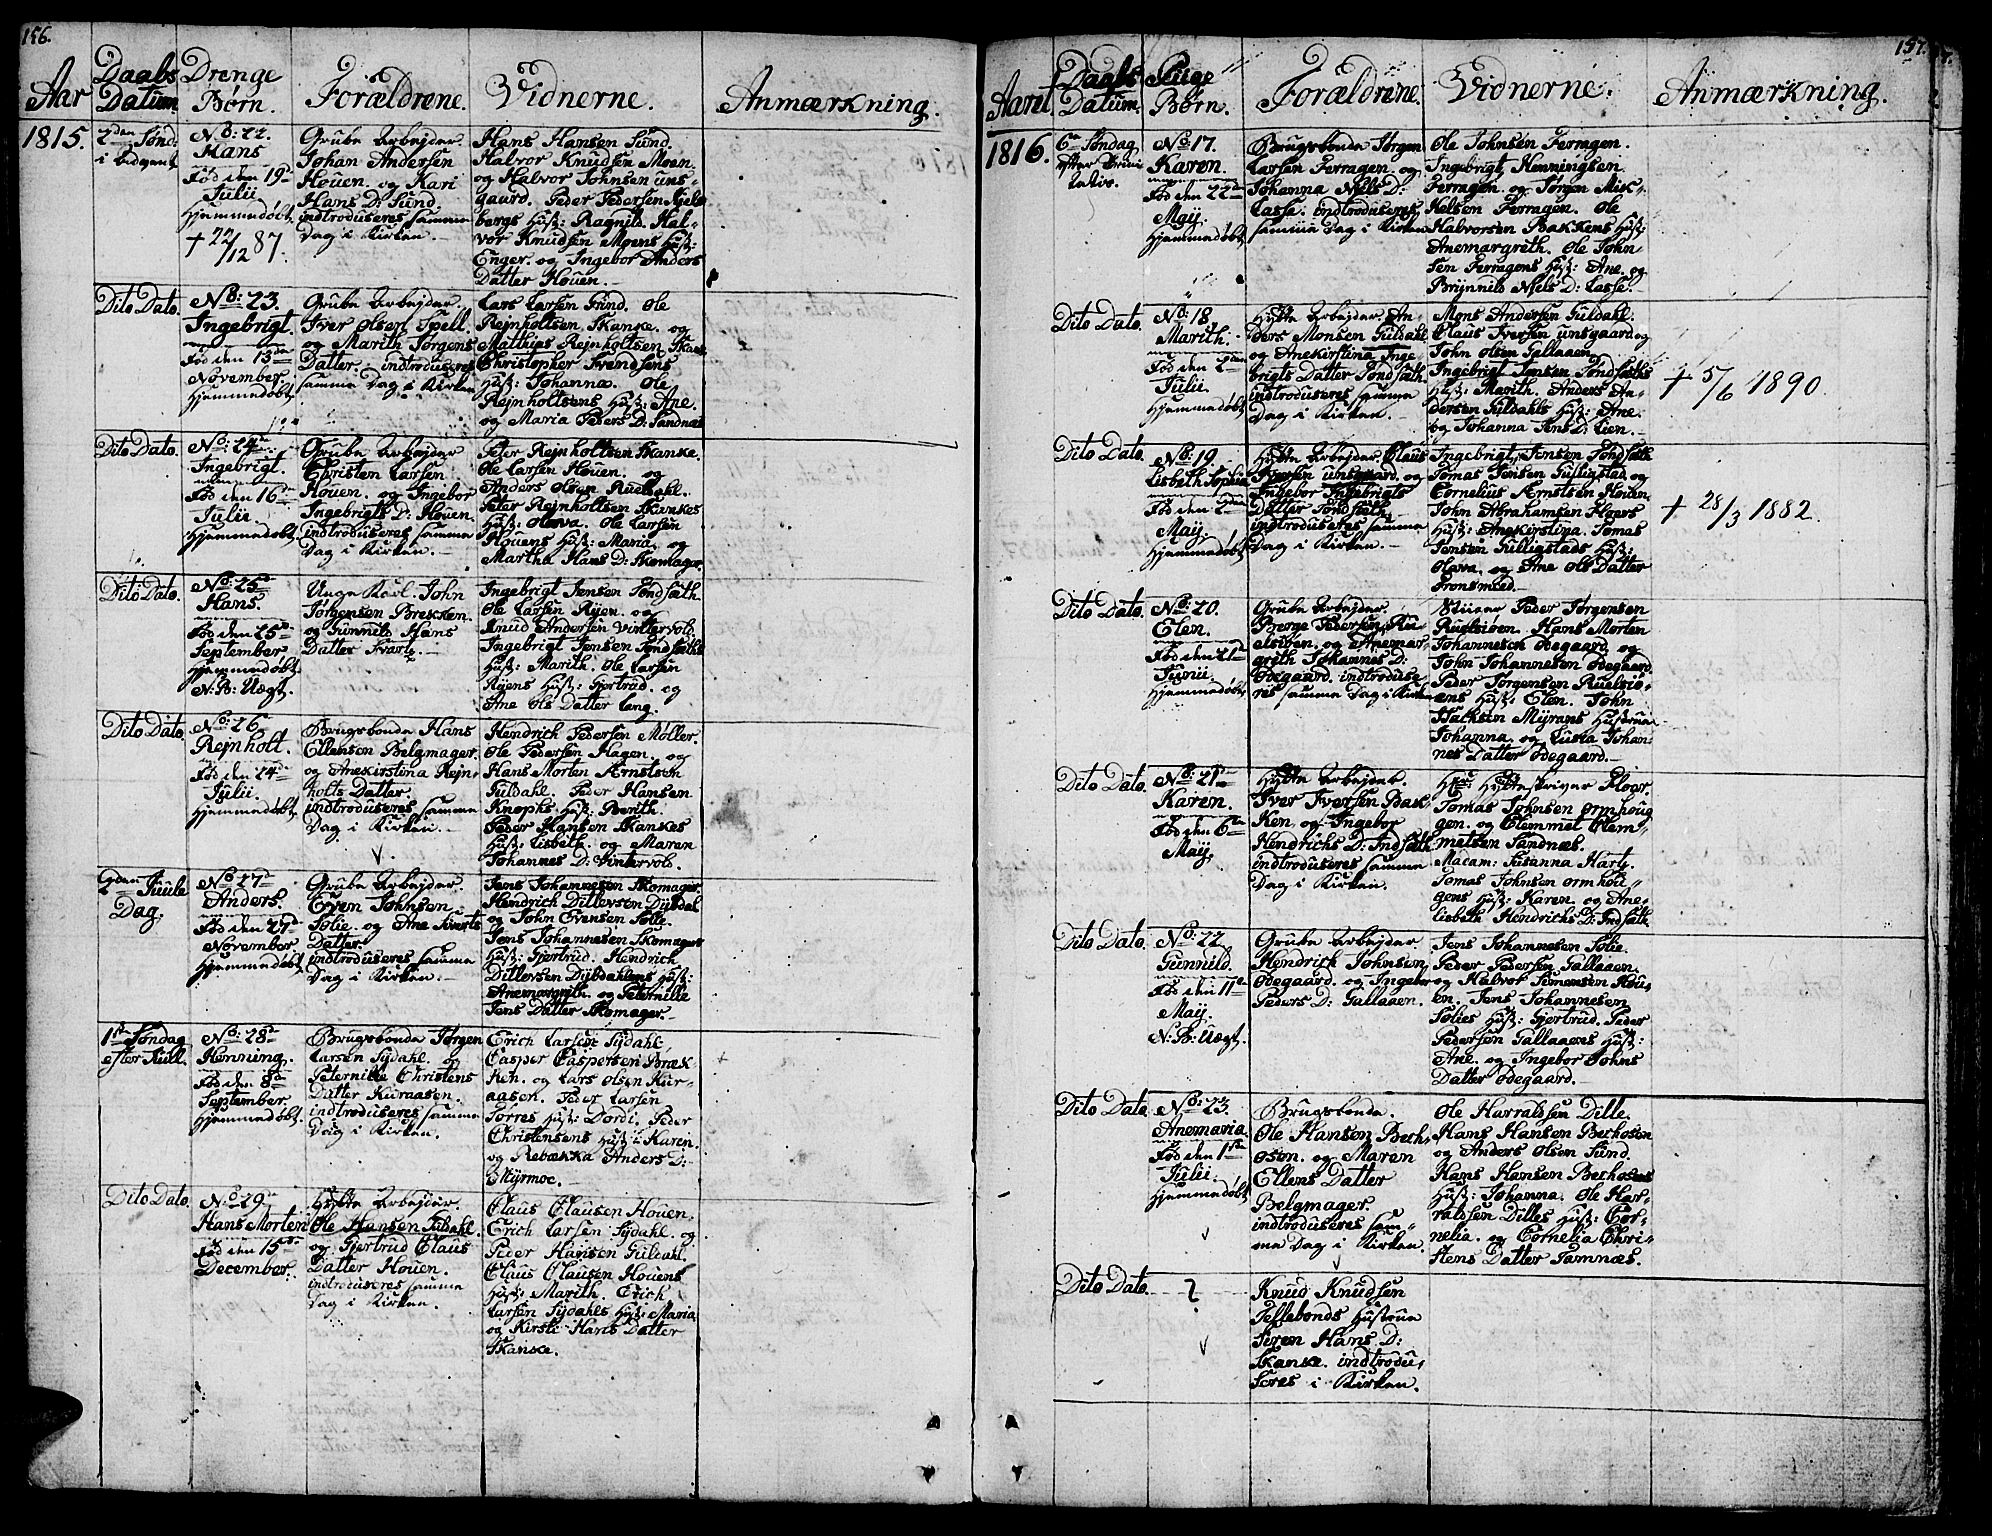 156.
Aar
Daabs Datum
Drenge Børn.
Forældrene.
Vidnerne.
Anmærkning.
1815.
2den Sønd:
i Advent
No: 22.
Hans
Fød den 19de
Julii
Hjemmedøbt
+ 22/12 87.
Grube Arbejder
Johan Andersen
Houen. og Kari
Hans D: Sund.
indtroduseres samme
Dag i Kirken.
Hans Hansen Sund.
Halvor Knudsen Moen
og Halvor Johnsen uns-
gaard. Peder Pedersen
bergs Hust: Ragnild. Hal-
vor Knudsen Moens Hust:
Enger. og Ingebor Anders
Datter Houen.
Dito Dato.
No: 23.
Ingebrigt.
Fød den 13de
November.
Hjemmedøbt
Grube Arbejder.
Iver Olsen Spell.
og Marith Jørgens
Datter. indtroduseres
samme Dag i Kirken
Lars Larsen Sund. Ole
Rejnholtsen Skanke. og
Mathias Rejnholtsen Skan
Christopher Svendsens
Hust: Johanna. Ole
Rejnholtsens Hust: Ane.
og Maria Peders D: Sandnæs
Dito Dato.
No: 24de
Ingebrigt.
Fød den 16de
Julii
Hjemmedøbt
Grube Arbejder
Christen Larsen
Houen. og Ingebor
Ingebrigts D: Houen.
indtroduseres samme
Dag i Kirken.
Peter Rejnholtsen Skanke.
Ole Larsen Houen. og
Anders Olsen Rueldahl.
Peter Rejnholtsen Skankes
Hust: Olava. Ole Larsen
Houens Hust: Maria. og
Martha Hans D: Skomager.
Dito Dato.
No: 25de
Hans.
Fød den 25de
September
Hjemmedøbt.
N:B: Uægt.
Unge Karl. John
Jørgensen Brekken.
og Gunnild Hans
Datter Svart.
Ingebrigt Jensen Tøndsæth.
Ole Larsen Ryen. og
Knud Andersen Vintervold.
Ingebrigt Jensen Tøndsæths
Hust: Marith. Ole Larsen
Ryens Hust: Gjertrud. og
Ane Ols Datter Leng.
Dito Dato.
No: 26de
Rejnholt.
Fød den 24de
Julii
Hjemmedøbt
Brugsbonde Hans
Ellensen Belgmager.
og Anekirstina Rejn-
holts Datter.
indtroduseres samme
Dag i Kirken.
Hendrich Pedersen Møller.
Ole Pedersen Hagen. og
Hans Morten Arntsen
Guldahl. Peder Hansen
Knophs Hust: Berith.
Peder Hansen Skankes
Hust: Lisbeth. og Maren
Johannes D: Vintervold.
2den Juule
Dag.
No 27de
Anders.
Fød den 27de
November
Hjemmedøbt
Grube Arbejder.
Even Johnsen
Solie. og Ane Siverts
Datter.
indtroduseres samme
Dag i Kirken.
Jens Johannesen Skomager.
Hendrich Ditlevsen Dybdal
og John Evensen Solie.
Jens Johannesen Skomagers
Hust: Gjertrud. Hendrich
Ditlevsen Dybdahlens Hust:
Anemargrith. og Peternille
Jens Datter Skomager.
1ste Søndag
efter Juul.
No: 28de
Henning.
Fød den 8de
September.
Hjemmedøbt
Brugsbonde Jørgen
Larsen Sydahl. og
Peternille Christens
Datter Kuraasen.
indtroduseres samme
Dag i Kirken.
Erich Larsen Sydahl.
Casper Caspersen Bræk-
ken. og Lars Olsen Kur-
aasen. Peder Larsen
Torres Hust: Dordi. Peder
Christensens Hust: Karen.
og Rebækka Anders D:
Myrmoe.
Dito Dato.
No 29de
Hans Morten
Fød den 15de
December.
Hytte Arbejder.
Ole Hansen Guldahl.
og Gjertrud Claus
Datter Houen.
indtroduseres samme
Dag i Kirken.
Claus Clausen Houen.
Erich Larsen Sydahl. og
Peder Hansen Guldahl.
Claus Clausen Houens
Hust: Marith. Erich
Larsen Sydahls Hust: Maria.
og Kirsti Hans Datter
Skanke.
157.
Aaret
Daabs Datum.
Pige Børn.
Forældrene.
Vidnerne.
Anmærkning.
1816.
6te Søndag
efter Trini
tatis.
No: 17.
Karen.
Fød den 22de
May.
Hjemmedøbt
Brugsbonde Jørgen
Larsen Ferragen. og
Johanna Niels D:
Lasse. indtroduseres
samme Dag i Kirken
Ole Johnsen Ferragen.
Ingebrigt Henningsen
Ferragen. og Jørgen Mik-
kelsen Ferragen. Ole
Halvorsen Bakkens Hust:
Anemargreth. Ole John
sen Ferragens Hust: Ane. og
Brynnild Niels D: Lasse.
Dito Dato.
No: 18
Marith.
Fød den 2den
Julii.
Hjemmedøbt
Hytte Arbejder An-
ders Monsen Guldahl
og Anekirstina Inge-
brigts Datter Tøndsæth.
indtroduseres samme
Dag i Kirken.
Mons Andersen Guldahl.
Claus Iversen unsgaard og
John Olsen Gallaaen.
Ingebrigt Jensen Tøndsæths
Hust: Marith. Anders An-
dersen Guldahls Hust: Ane.
og Johanna Jens D: Lien.
+ 5/6 1890.
Dito Dato.
No: 19
Lisbeth Sophia
Fød den 2den
May.
Hjemmedøbt
Hytte Arbejder. Claus
Iversen unsgaard. og
Ingebor Ingebrigts
Datter Tøndsæth.
indtroduseres samme
Dag i Kirken.
Ingebrigt Jensen Tøndsæth
Tomas Jensen Gulligstad. og
Cornelius Arntsen Houen.
John Abrahamsen Floers
Hust: Anekirstina. Tomas
Jensen Gulligstads Hust:
Olava. og Ane Ols Datter
Tronsmed.
+ 28/3 1882.
Dito Dato.
No: 20.
Elen.
Fød den 21de
Junii
Hjemmedøbt
Grube Arbejder.
Børge Pedersen Ru-
elsiøen. og Anemar-
grith Johannes D:
Ødegaard. indtroduse-
res samme Dag i Kirken
Stiiger Peder Jørgensen
Ruelsiøen. Hans Morten
Johannesen Ødegaard. og
John Johannesen Ødegaard.
Peder Jørgensen Ruelsiø-
ens Hust: Elen. John
Isachsen Myrans Hustrue
Johanna. og Lusia Johan-
nes Datter Ødegaard.
Dito Dato.
No: 21de
Karen.
Fød den 6te
May.
Hytte Arbejder.
Iver Iversen Bak-
ken. og Ingebor
Hendrichs D: Indsæth
indtroduseres samme
Dag i Kirken.
Hr: Hytteskriver Floer.
Tomas Johnsen Ormhoug-
gen. og Clemmet Clem-
metsen Sandnæs.
Madam: Susanna Hartz.
Tomas Johnsen Ormhou-
gens Hust: Karen. og Ane-
lisbeth Hendrichs D: Indsæth.
Dito Dato.
No: 22.
Gunnild.
Fød den 11te
May.
N:B: Uægt.
Grube Arbejder
Hendrich Johnsen
Ødegaard. og Ingebor
Peders D: Gallaaen.
Jens Johannesen Solie.
Peder Pedersen Gallaaen.
og Halvor Simonsen Hou-
en. Jens Johannesen
Solies Hust: Gjertrud. Peder
Pedersen Gallaaens Hust:
Ane. og Ingebor Johns
Datter Ødegaard.
Dito Dato.
No: 23.
Anemaria.
Fød den 1ste
Julii.
Hjemmedøbt
Brugsbonde.
Ole Hansen Beth-
osen. og Maren
Ellens Datter
Belgmager.
indtroduseres sam-
me Dag i Kirken.
Ole Harraldsen Dille.
Hans Hansen Bethosen
og Anders Olsen Sund.
Hans Hansen Bethosens
Hust: Johanna. Ole Har-
raldsen Dilles Hust: Cor-
nelia. og Cornelia Chri-
stens Datter Tamnæs.
Dito Dato.
?
Knud Knudsen
Jeslebonds Hustrue
Siren Hans D:
Skanke. indtrodu-
seres i Kirken.